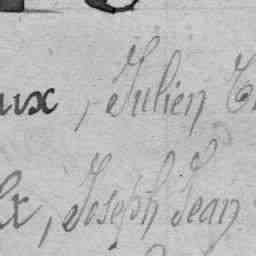 ux, Julien
x, Joseph Jean